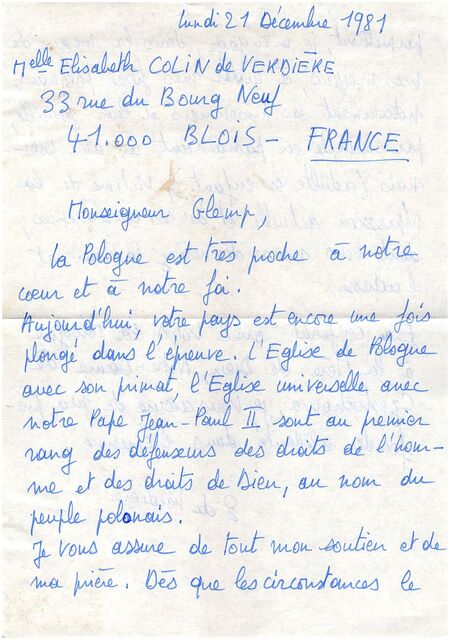 Lundi 21 Décembre 1981
Melle Elisabeth COLIN de VERDIÈRE
33 rue du Bourg Neuf
41.000 BLOIS - FRANCE
Monseigneur Glemp,
La Pologne est très proche à notre
coeur et à notre foi.
Aujourd'hui, votre pays est encore une fois
plongé dans l'épreuve. L'Eglise de Pologne
avec son primat, l'Eglise universelle avec
notre Pape Jean-Paul II sont au premier
rang des défenseurs des droits de l'hom-
me et des droits de Dieu, au nom du
peuple polonais.
Je vous assure de tout mon soutien et de
ma prière. Dès que les circonstances le